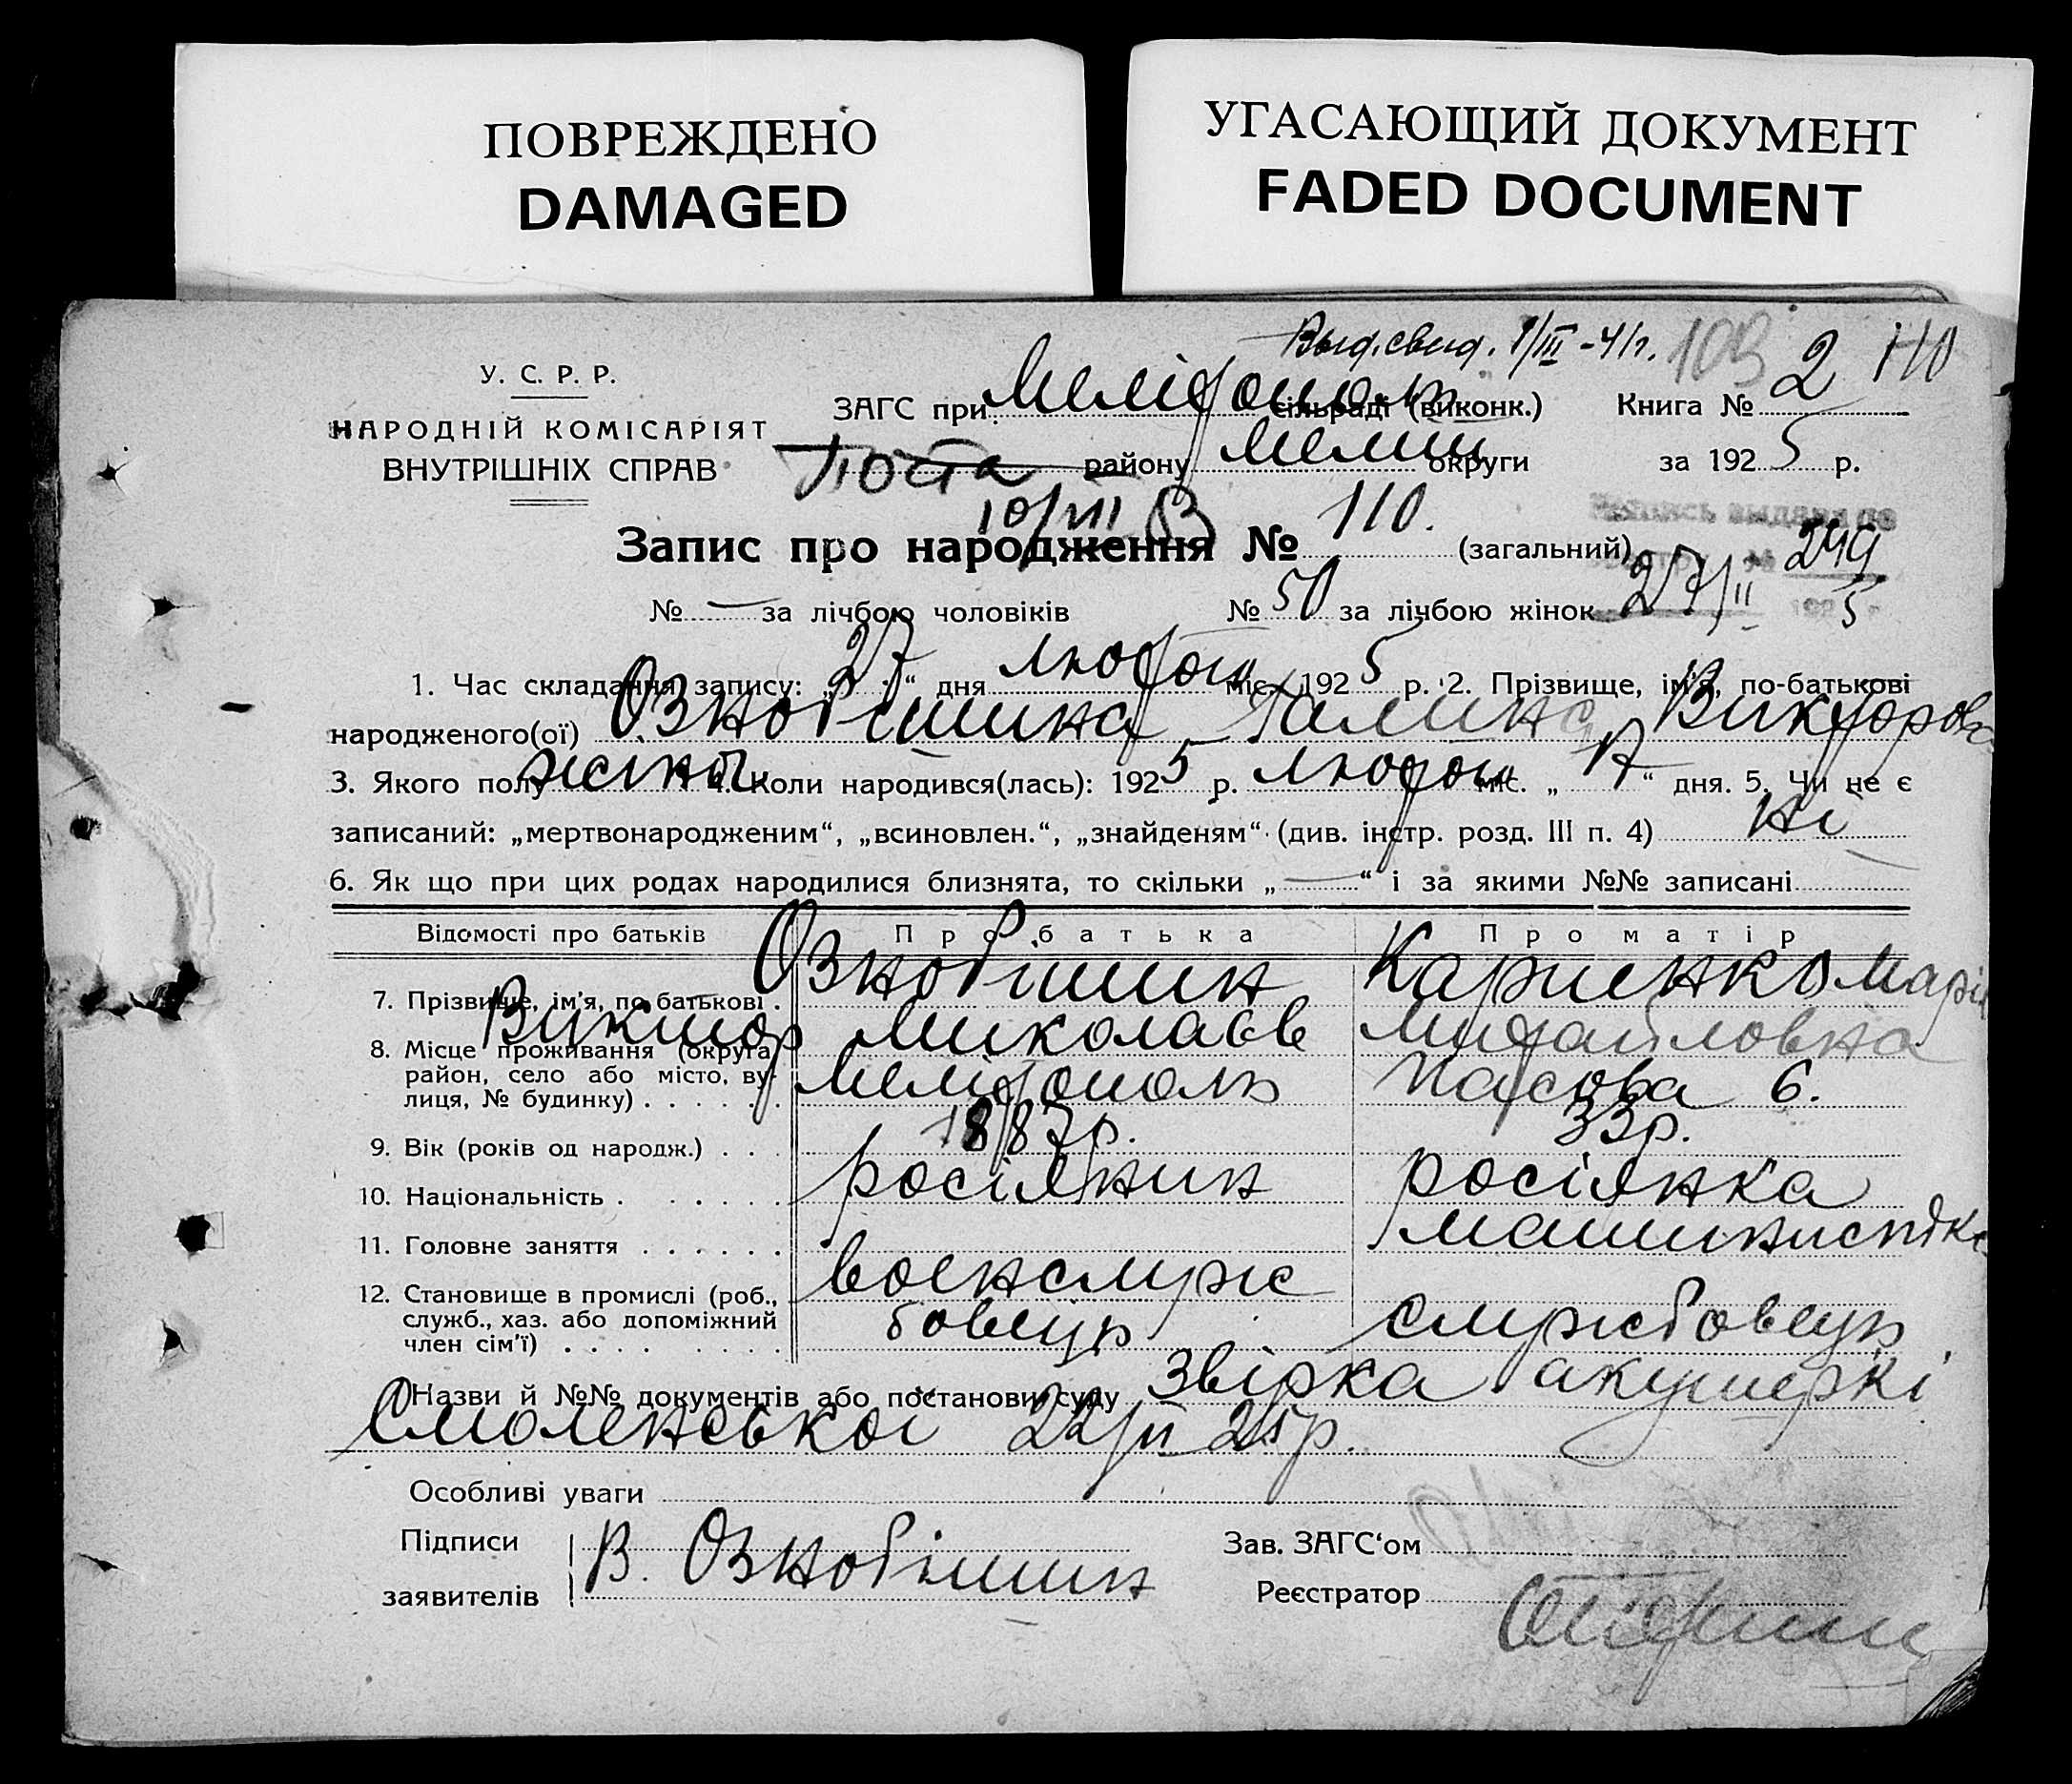 ПОВРЕЖДЕНО
DAMAGED
УГАСАЮЩИЙ ДОКУМЕНТ
FADED DOCUMENT
Выд. свид. 1/III-41г. 103 110
У. С. Р. Р.
НАРОДНІЙ КОМІСАРІЯТ
ВНУТРІШНІХ СПРАВ
ЗАГС при Мелітополь сільраді (виконк.) Книга № 2
району Мелит округи за 1925 р.
Поста
10/VII
Запис про народження № 110. (загальний)
249
№ — за лічбою чоловіків № 50 за лічбою жінок 27/II 5
1. Час складання запису: „27“ дня лютого міс. 1925 р. 2. Прізвище, ім'я, по-батькові
народженого(ої) Ознобішина Галина Викторовна
3. Якого полу жіноч. 4. Коли народився(лась): 1925 р. лютого міс. „17“ дня. 5. Чи не є
записаний: „мертвонародженим“, „всиновлен.“, „знайденям“ (див. інстр. розд. III п. 4) Ні
6. Як що при цих родах народилися близнята, то скільки „—“ і за якими №№ записані
Відомості про батьків Про батька Про матір
7. Прізвище, ім'я, по батькові Ознобішин Карпенко Марія
Виктор Миколаєв Михайловна
8. Місце проживання (округа, район, село або місто, вулиця, № будинку) Мелітополь 6.
9. Вік (років од народж.) 1887р. 33р.
10. Національність росіянин росіянка
11. Головне заняття машинистка
12. Становище в промислі (роб., служб., хаз. або допоміжний член сім'ї) военслужбовець службовець
Назви й №№ документів або постанови суду Звірка акушеркі
Смоленської 22/II 25р.
Особливі уваги
Підписи
заявителів
В. Ознобішин
Зав. ЗАГС‘ом
Реєстратор